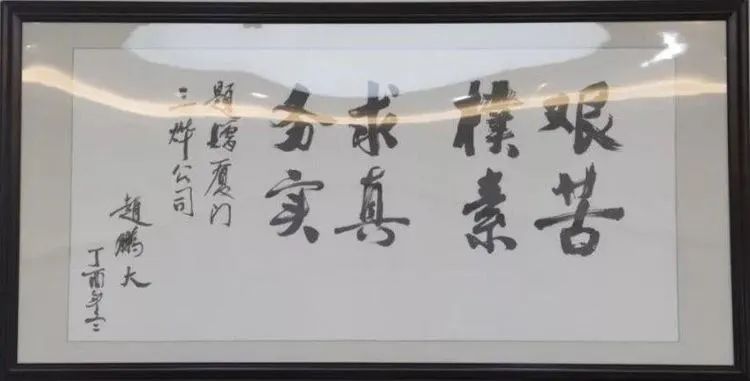 艰苦
樸素
求真
务实
题赠厦门
三烨公司
趙鹏大
丁酉